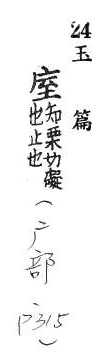 24玉篇
庢知栗切礙
也止也
(广部
P315)